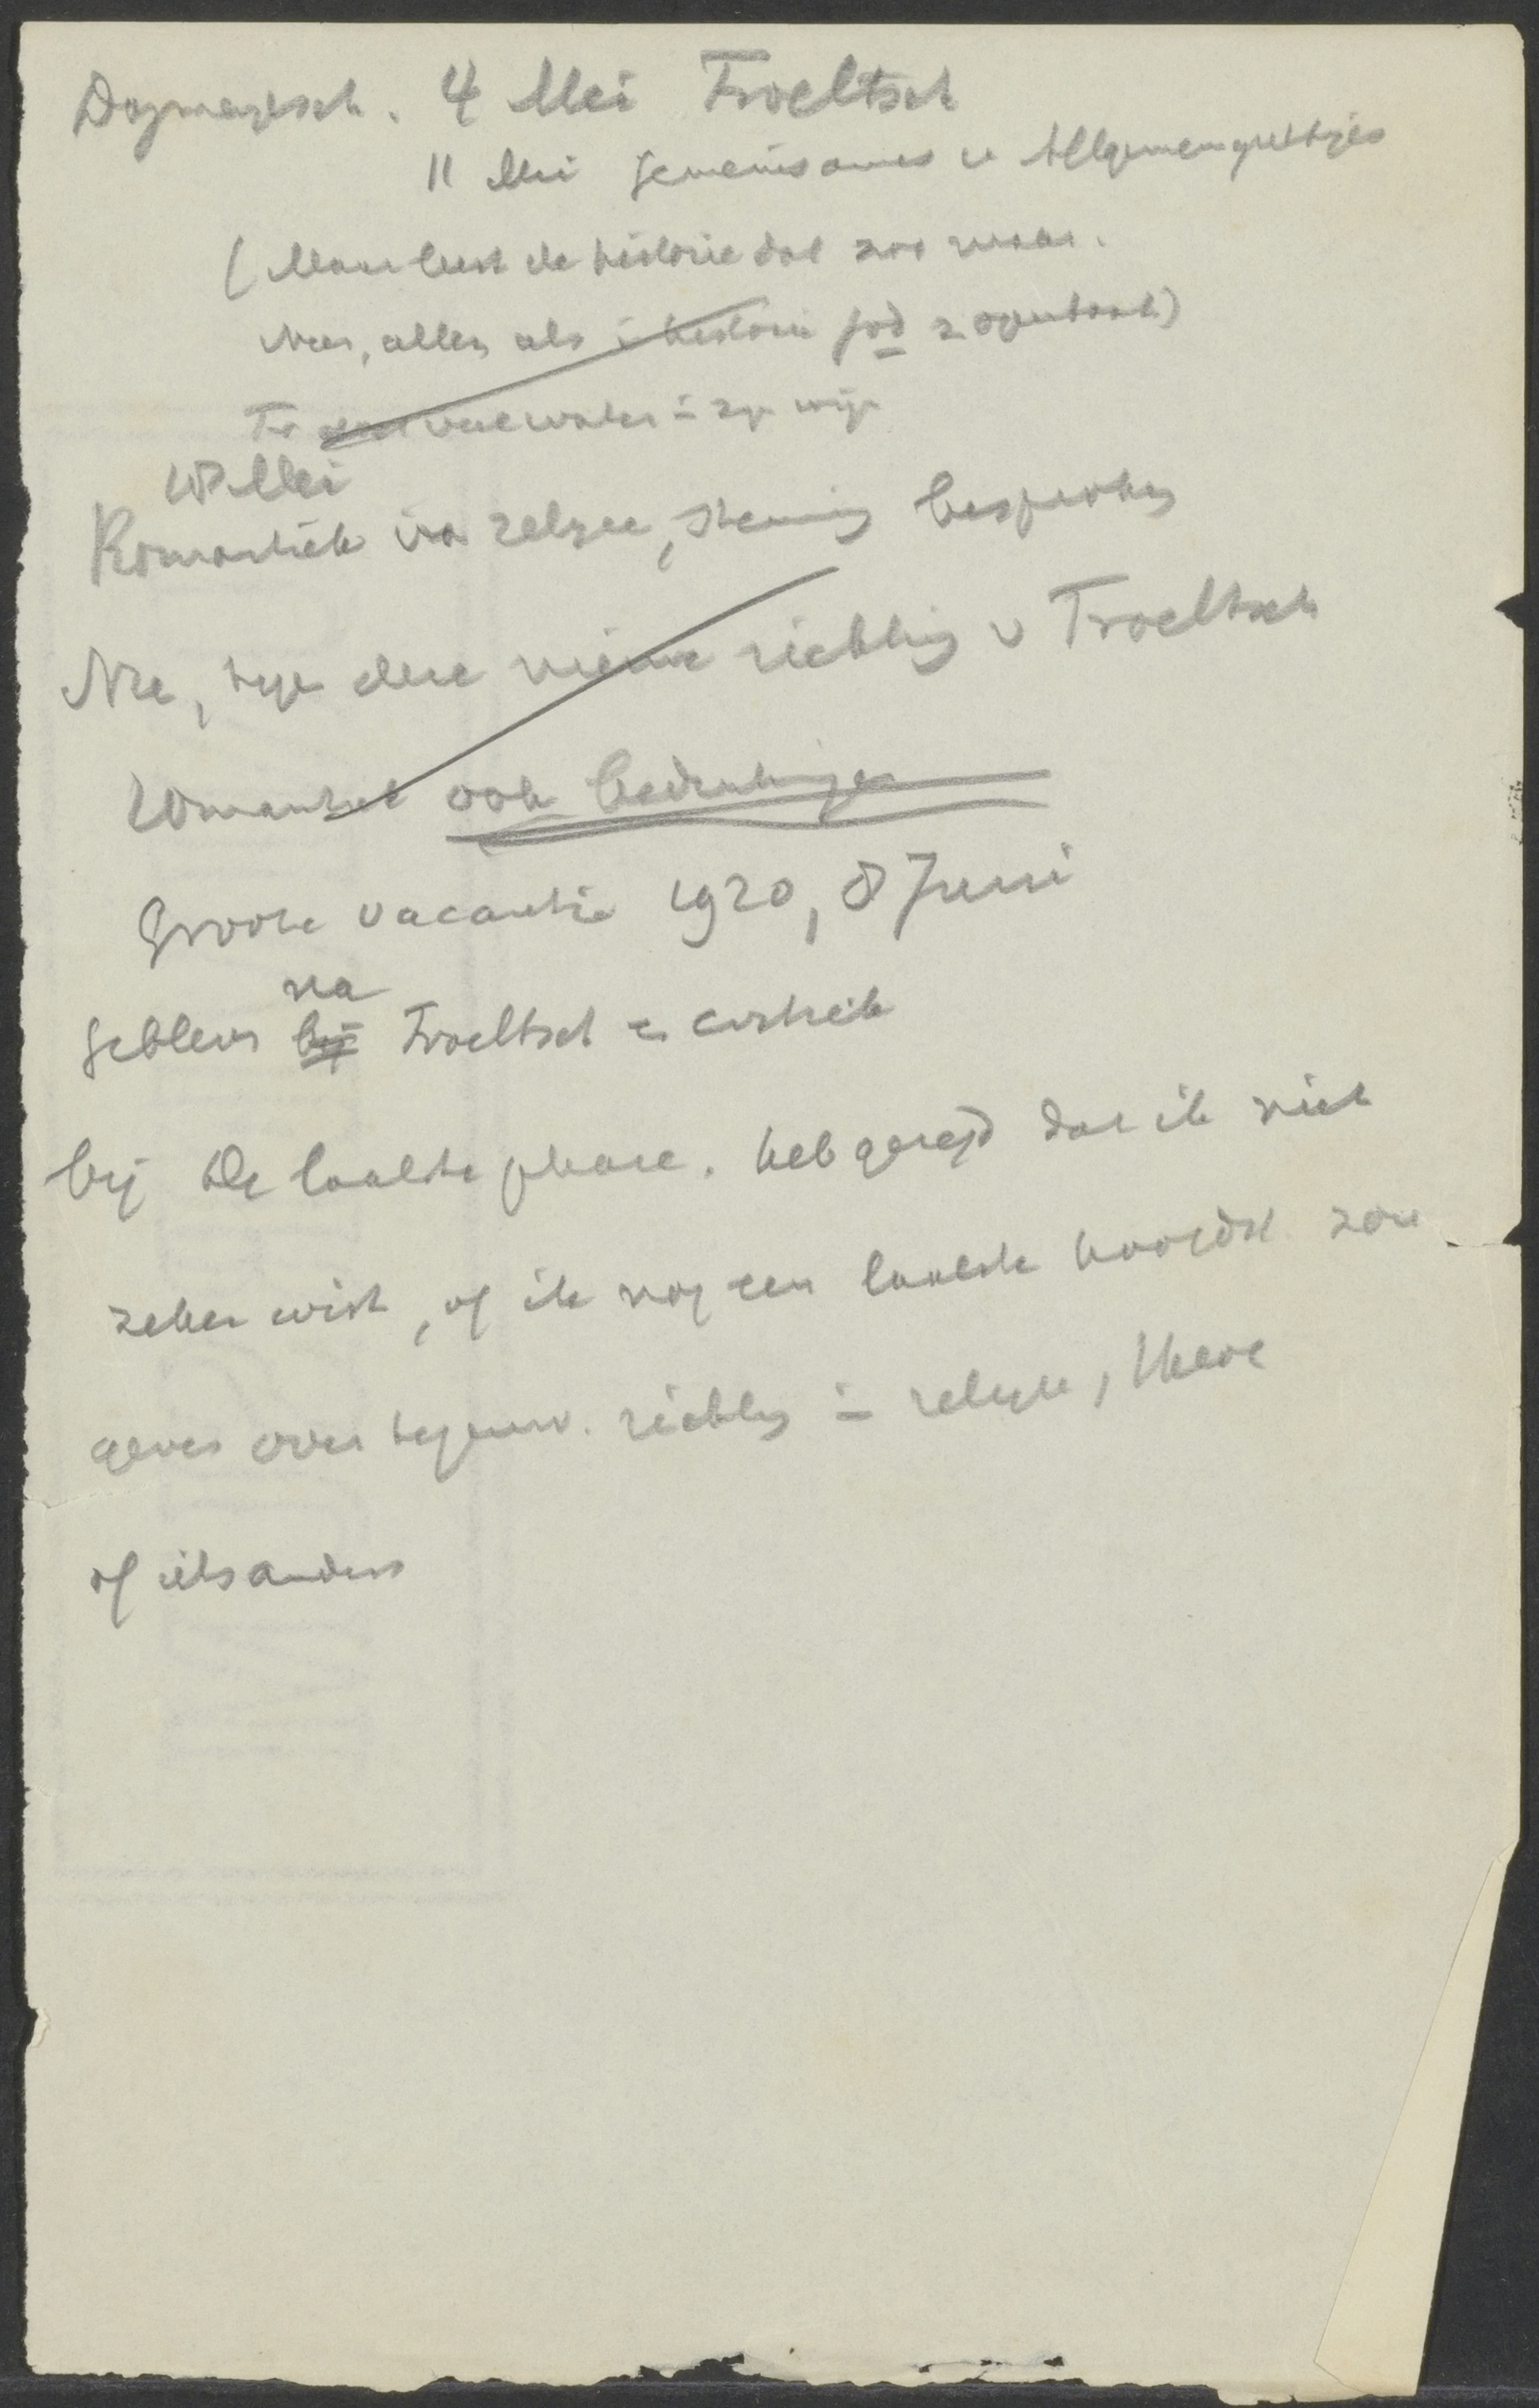 Dogmatisch. 4 Mei Troeltsch
11 Mei Gemeinsames u Allgemeingültiges
( Maar leert de historie dat zoo maar.
Neen, alleen als i historie God z openbaart)
Tr water i zijn wijn
18 Mei
Romantiek religie, besproken
Nu, tegen deze nieuwe richting v Troeltsch
Romantiek ook bedenkingen
Groote vacantie 1920, 8 Juni
na
Gebleven bij Troeltsch en
bij de laatste phase. heb gezegd dat ik niet
zeker wist, of ik nog een laatste hoofdst. zou
geven over tegenw. richting i religie,
of iets anders